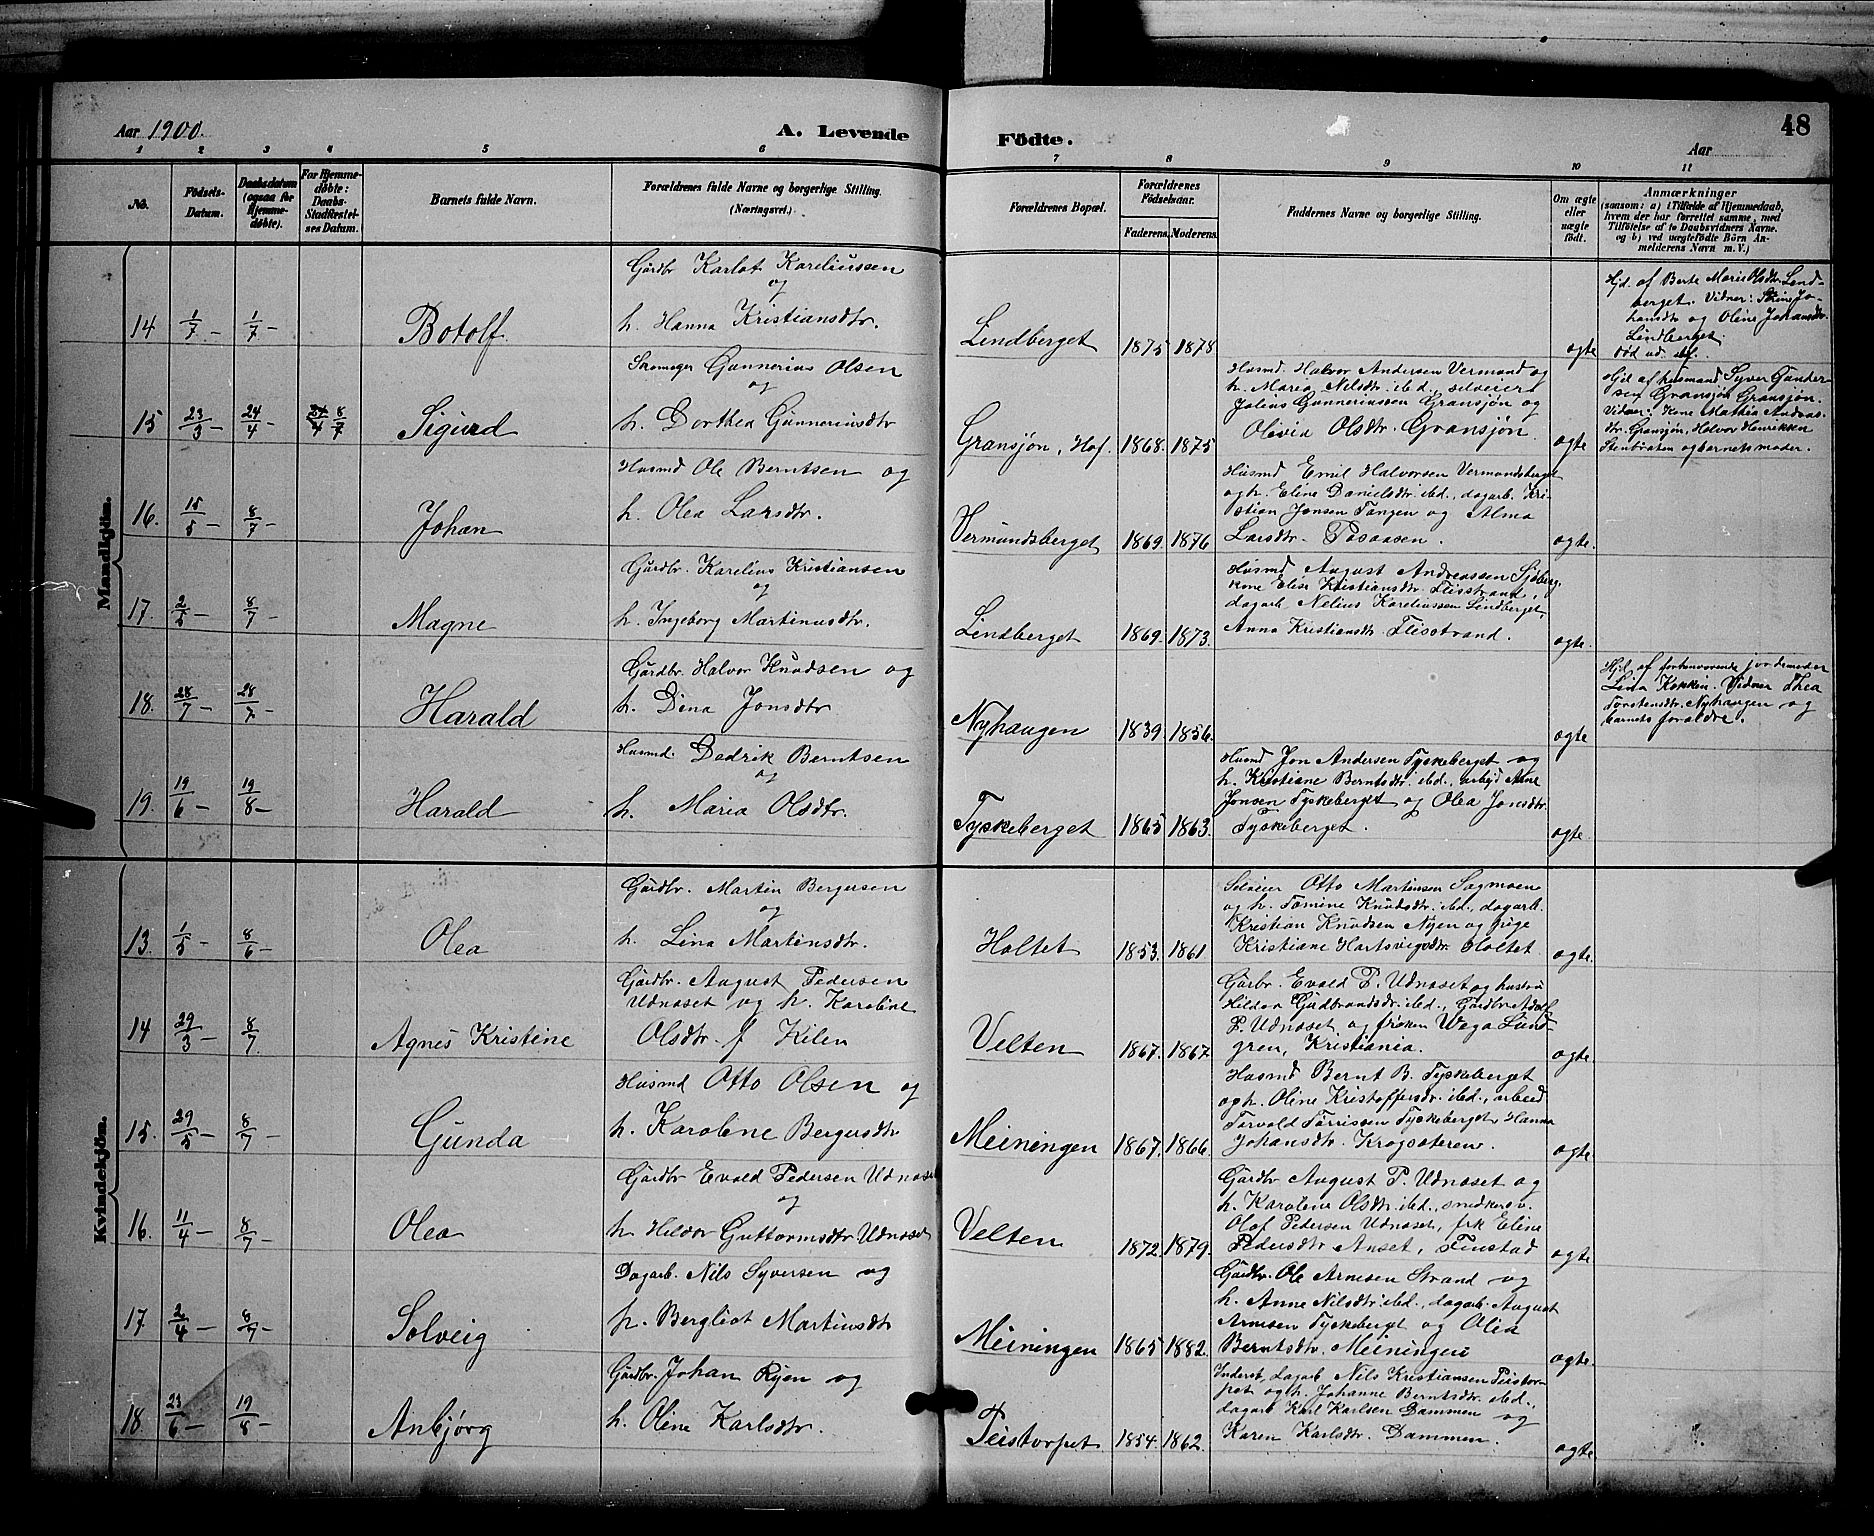 Aar 1900.
A. Levende
Födte.
Aar
48
1 2 3 4 5 6 7 8 9 10 11
No.
Födsels-
Datum.
Daabsdatum
(ogsaa for
Hjemme-
døbte).
For Hjemme-
døbte:
Daabs-
Stadfæstel-
ses Datum.
Barnets fulde Navn.
Forældrenes fulde Navne og borgerlige Stilling.
(Næringsvei.)
Forældrenes Bopæl.
Forældrenes
Fødselsaar.
Faderens. Moderens.
Faddernes Navne og borgerlige Stilling.
Om ægte
eller
uægte
født.
Anmærkninger
(saasom: a) i Tilfælde af Hjemmedaab,
hvem der har forrettet samme, med
Tilføielse af to Daabsvidners Navne.
og b) ved uægtefødte Börn An-
melderens Navn m. V.)
Mandkjön.
14 1/7 – 1/7 – Botolf
Gårdbr Karlot Kareliussen
og
h. Hanna Kristiansdtr.
Lindberget 1875 1878
ægte
Hjd. af Berte Marie Olsdtr. Lind-
berget. Vidner: Stine Jo-
hansdtr og Oline Johansdtr
Lindberget.
død
15 23/3 – 24/4 – 8/7 Sigurd
Gunnerius Olsen
og
h. Dorthea Gunneriusdtr
Gransjøn, Hof. 1868. 1875
Husmd Halvor Andersen Vermund og
h. Maria Nilsdtr. ibd., selveier
Julius Gunneriussen Gransjøn og
Olivia Olsdtr. Gransjøn.
ægte
Hjd af husmand Syver Gunder-
sen Gransjøn Gransjøn.
Vidner: Kone Mathea Andreas-
dtr. Gransjøn, Halvor Henriksen
Stenbraten og barnets moder.
16. 15/5 – 8/7 – Johan
Husmd Ole Berntsen og
h. Olea Larsdtr.
Vermundsberget 1869. 1876
Husmd Emil Halvorsen Vermundsberget
og h. Eline Danielsdtr ibd., dagarb. Kri-
stian Jonsen Tangen og Alma
Larsdtr. Posaasen.
ægte.
17. 2/5 – 8/7 – Magne
Gårdbr. Karelius Kristiansen
og
h. Ingeborg Martinusdtr.
Lindberget 1869. 1873.
Husmd August Andreassen Sjøberg,
kone Elise Kristiansdtr. Flisstrand,
dagarb. Nelius Kareliussen Lindberget,
Anna Kristiansdtr. Flisstrand.
ægte.
18. 28/7 – 28/7 – Harald
Gårdbr. Halvor Knudsen og
h. Dina Jonsdtr
Nyhaugen 1839. 1856.
ægte
Hjd. af forhenværende jordemoder
Lina Kokkin. Vidner Thea
Torstensdtr. Nyhaugen og
barnets forældre.
19. 19/6 – 19/8 – Harald
Husmd. Dedrik Berntsen
og
h. Maria Olsdtr.
Tyskeberget 1865 1863.
Husmd Jon Andersen Tyskeberget og
h. Kristiane Berntsdtr. ibd., arbejd Arne
Jonsen Tyskeberget og Olea Jonsdtr.
Tyskeberget.
ægte
Kvindekjön.
13. 1/5 – 8/6 – Olea
Gårdbr. Martin Bergersen
og
h. Lina Martinsdtr.
Holtet 1853. 1861
Selveier Otto Martinsen Sagmoen
og h. Tomine Knudsdtr. ibd., dagarb.
Kristian Knudsen Nyen og pige
Kristiane Hartvigsdtr. Holtet
ægte.
14 29/3 – 8/7. Agnes Kristine
Gårdbr. August Pedersen
Udnæset og h. Karoline
Olsdtr. f Kilen
Velten 1867. 1867
Gårbr. Evald P. Udnæset og hustru
Hilda Gudbrandsdtr. ibd., Gårdbr. Adolf
P. Udnæset og frøken Waga Lund-
gren, Kristiania.
ægte.
15. 29/5 – 8/7 – Gunda
Husmd Otto Olsen og
h. Karoline Bergersdtr
Meiningen 1867. 1866.
Husmd Bernt B. Tyskeberget
og h. Oline Kristoffersdr. ibd., arbeid
Torvald Torrissen Tyskeberget, Hanna
Johansdtr. Krogsæteren.
ægte.
16. 11/4 – 8/7 – Olea
Gårdbr Evald Pedersen Udnæset
og
h. Hilda Guttormsdtr Udnæset
Velten 1872. 1879.
Gårdbr August P. Udnæset og
h. Karoline Olsdtr. ibd., snedkersv.
Olaf Pedersen Udnæset, frk Eline
Pedersdtr Anset, Finstad
ægte
17 2/4 – 8/7 – Solveig
Dagarb. Nils Syversen og
h. Bergliot Martinsdtr
Meiningen 1865 1882.
Gårdbr. Ole Arnesen Strand og
h. Anne Nilsdtr. ibd., dagarb. August
Arnesen Tyskeberget og Olea
Berntsdtr. Meiningen
ægte.
18. 23/6 – 19/8 – Anbjørg
Gårdbr. Johan Ryen og
h. Oline Karlsdtr.
Peistorpet 1854. 1862.
Inderst, dagarb Nils Kristiansen Peistor-
pet og h. Johanne Berntsdtr. ibd.,
dagarb Karl Karlsen Dammen og
Karen Karlsdtr. Dammen.
ægte